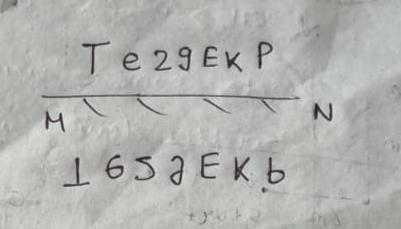 Te29EKP
M N
⊥6S2EKb